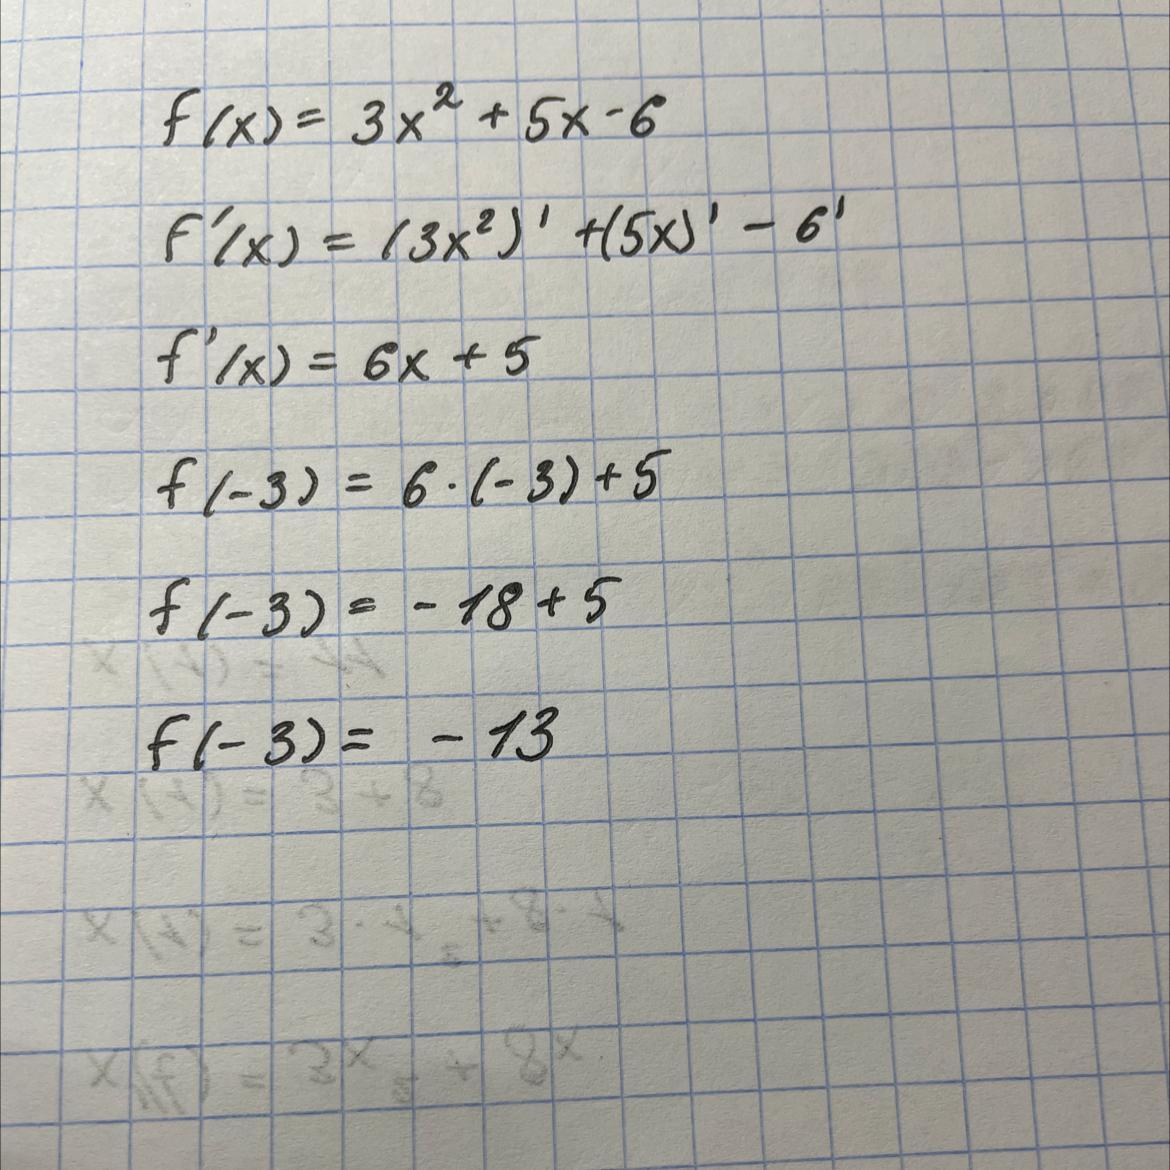 f(x) = 3x² + 5x - 6
f'(x) = (3x²)' + (5x)' - 6'
f'(x) = 6x + 5
f(-3) = 6·(-3) + 5
f(-3) = -18 + 5
f(-3) = -13